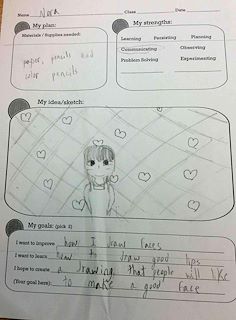 Name Nora Class Date
My plan:
Materials / Supplies needed:
paper, pencils and
color pencils
My strengths:
Learning Persisting Planning
Communicating Observing
Problem Solving Experimenting
My idea/sketch:
My goals: (pick 2)
I want to improve how I draw faces
I want to learn how to draw good lips
I hope to create a drawing that people will like
(Your goal here): to make a good face